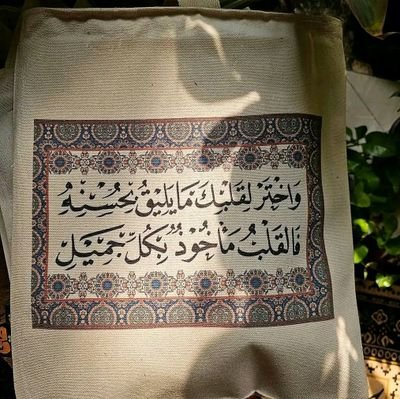 وَاخْتَرْ لِقَلْبِكَ مَا يَلِيْقُ بِحُسْنِهِ
فَالقَلْبُ مَأخُوْذٌ بِكُلِّ جَمِيْلِ